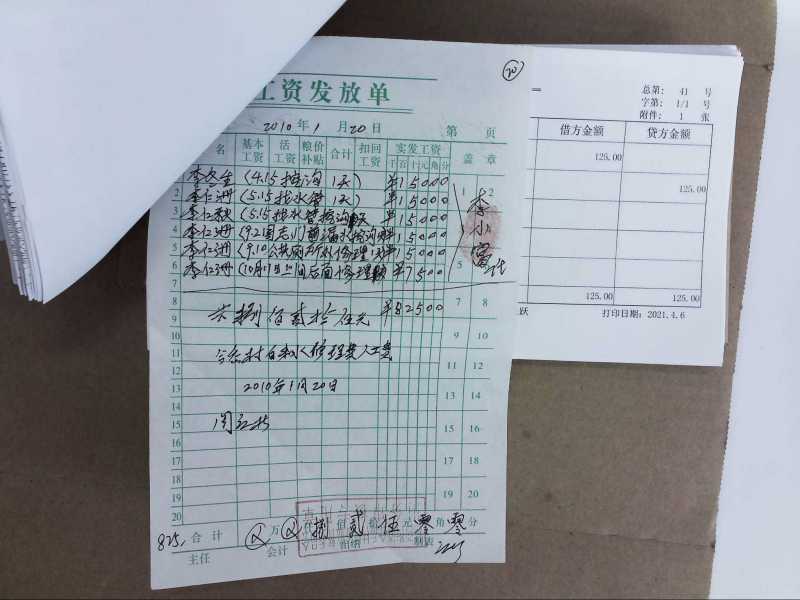 20
工资发放单
2010年1月20日 第 页
名 基本工资 活工资 粮价补贴 合计 扣回工资 实发工资 千百十元角分 盖章
李冬生 (4.15挖沟 1天) ¥15000 1 2
2 李仁洲 (5.15找水管 1天) ¥15000
3 李仁 (5.15找水管挖沟 天 ¥15000
4 李仁洲 (9.2 前漏水挖沟 15000
5 李仁洲 (9.10公共厕所 修理 ¥15000 5
6 李仁洲 (10月 日 后面修理 ¥7500
李小 代
7
8 共捌佰贰拾伍元 ¥82500 7 8
9 9 10
10
11 村自来水修理费人工费 11 12
12
13 2010年1月20日 13 14
14
15 周 15 16
16
17 17 18
18
19 19 20
20
825. 合计 万 仟捌佰贰拾伍元零角零分
主任 会计 出纳 制表
总第: 41 号
字第: 1/1 号
附件: 1 张
借方金额 贷方金额
125.00
125.00
125.00 125.00
跃 打印日期: 2021.4.6